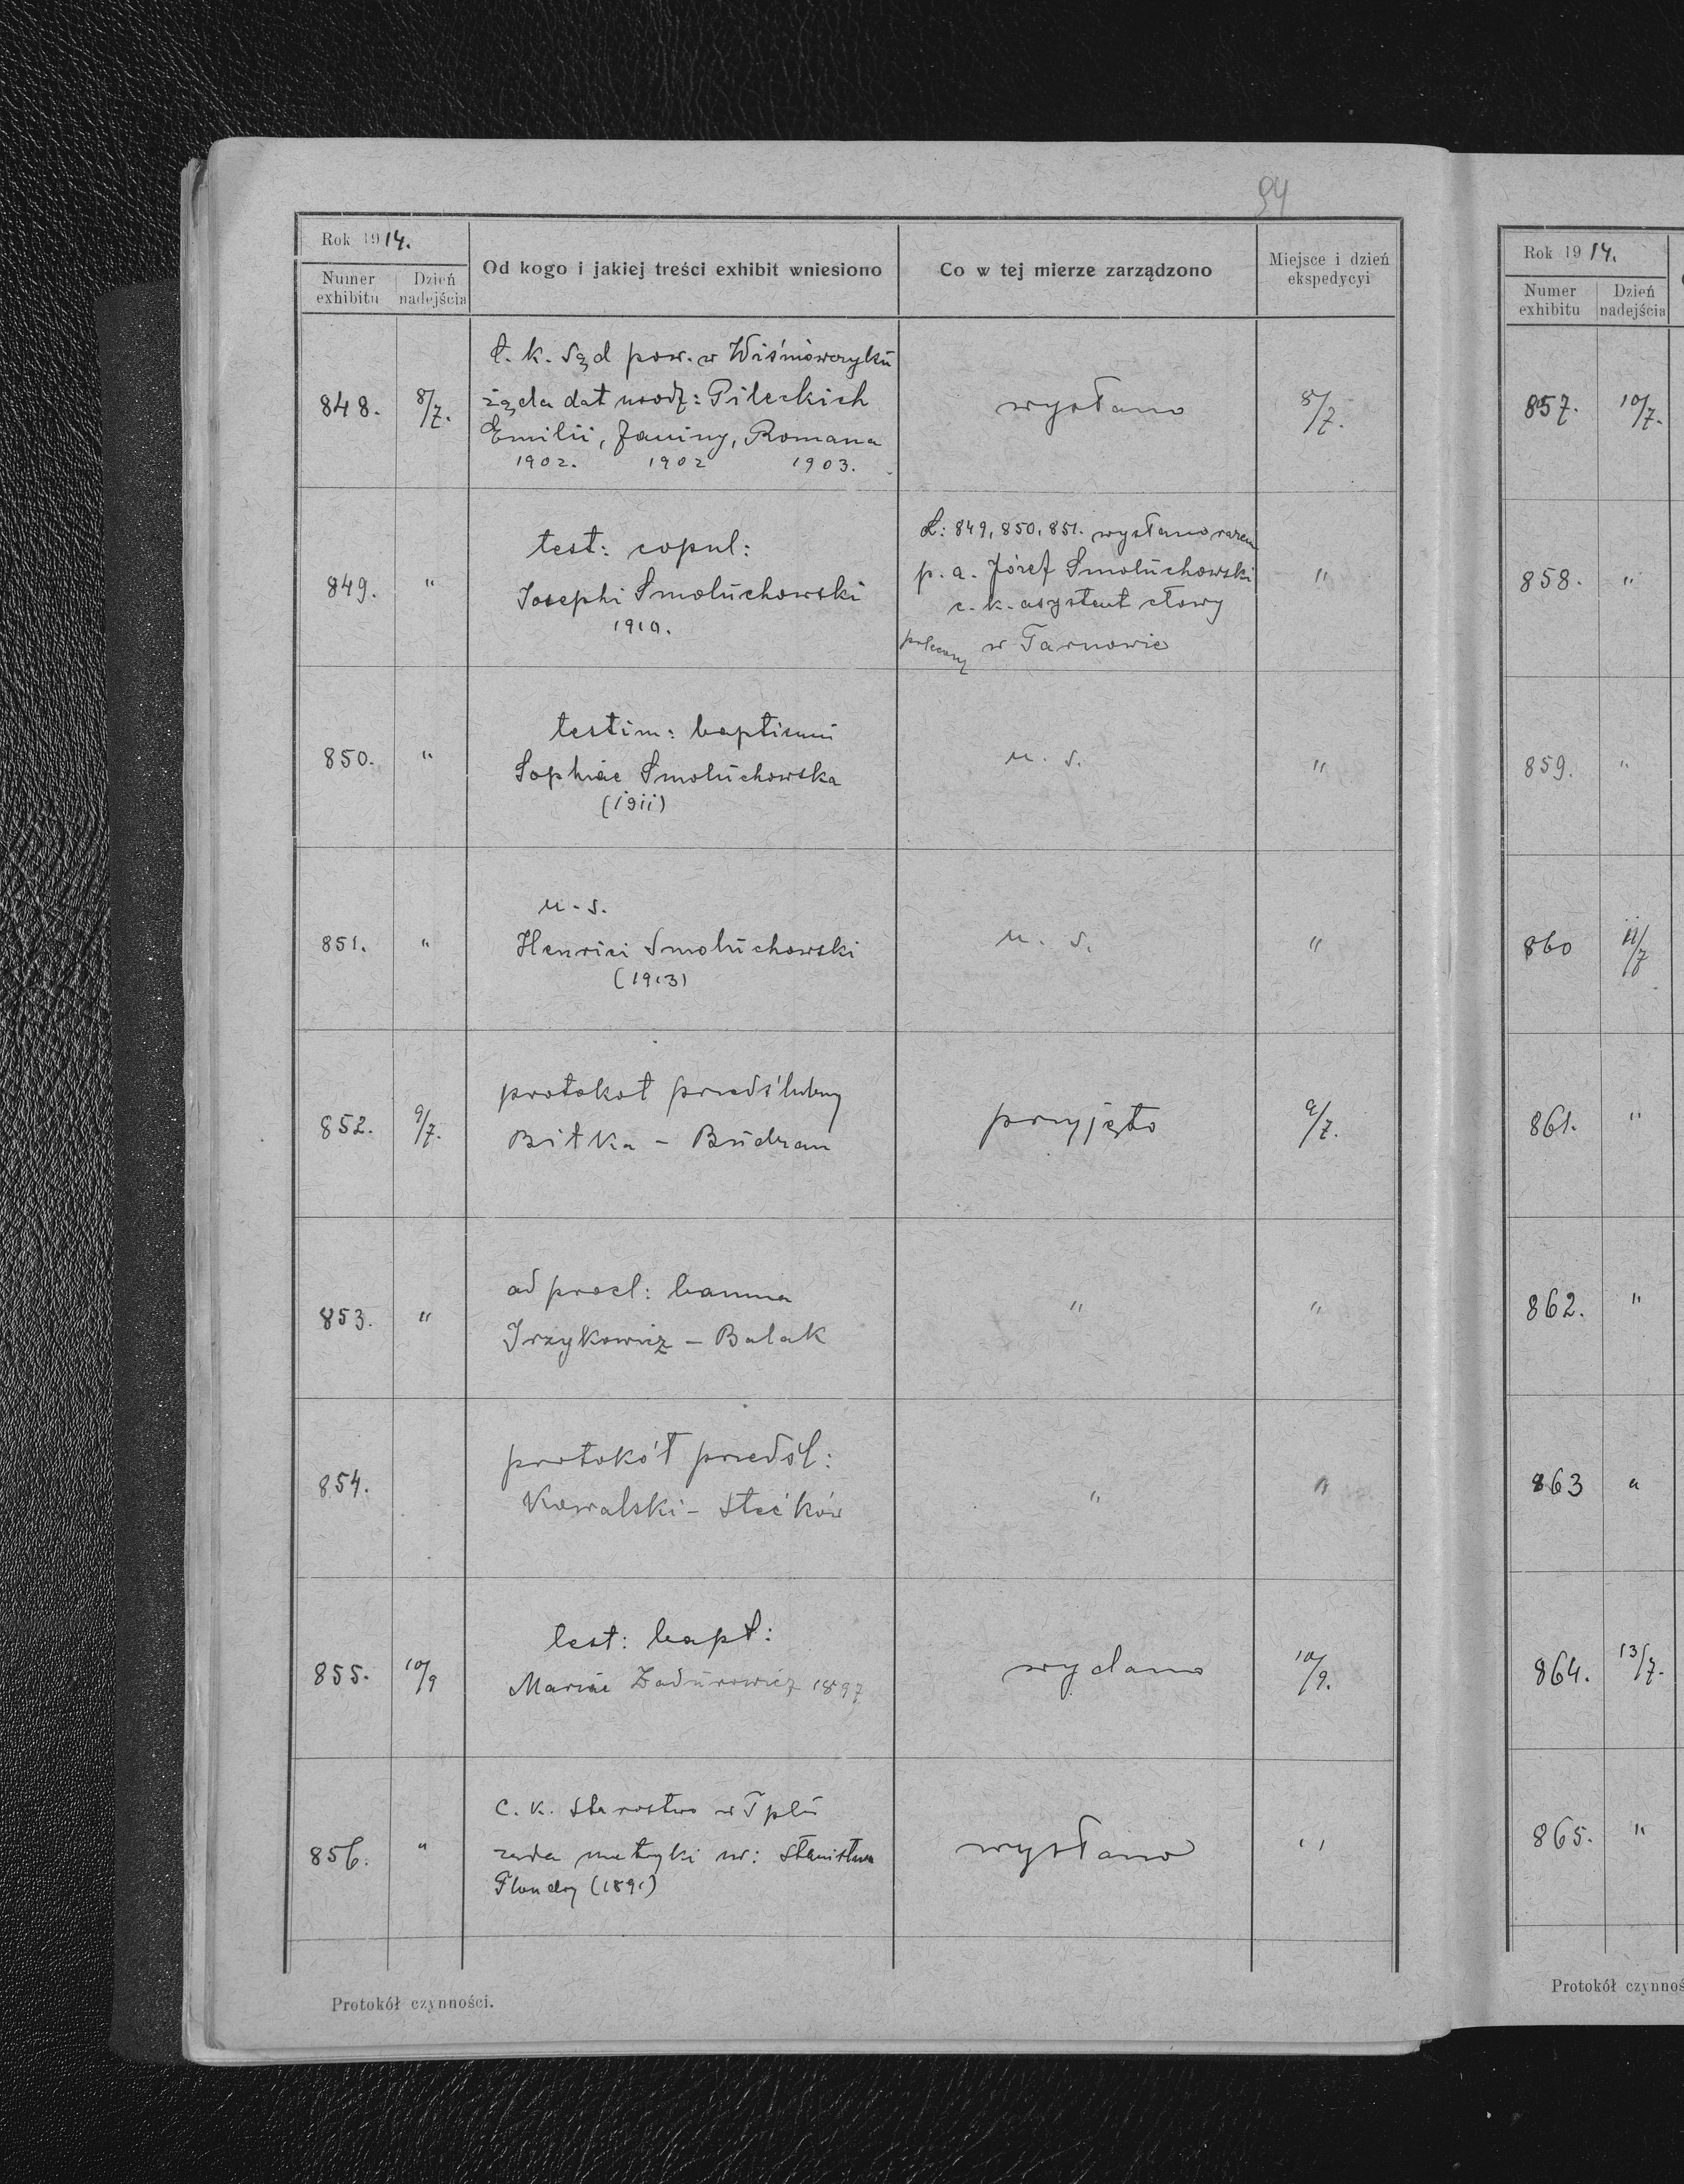 94
Rok 1914.
Numer exhibitu
Dzień nadejścia
Od kogo i jakiej treści exhibit wniesiono
Co w tej mierze zarządzono
Miejsce i dzień ekspedycyi
848. 8/7.
C. k. Sąd pow. w Wiśniowczyku
żąda dat urodz: Pileckich
Emilii, Janiny, Romana
1902. 1902 1903.
wysłano 8/7.
849. "
test: copul:
Josephi Smoluchowski
1910.
L: 849, 850, 851. wysłano razem
p. a. Józef Smoluchowski
c. k. asystent cłowy
polecony w Tarnowie
"
850. "
testim: baptismi
Sophiae Smoluchowska
(1911)
u. s. "
851. "
u. s.
Henrici Smoluchowski
(1913)
u. s. "
852. 9/7.
protokoł przedślubny
Biłka – Budzan
przyjęto 9/7.
853. "
ad procl: banna
Irzykowicz – Balak
" "
854.
protokół przedśl:
Kowalski – Stećków
" "
855. 10/9
test: bapt:
Mariae Zadurowicz 1897
wydano 10/9.
856. "
c. k. Starostwo w Tplu
żąda metryki ur: Stanisława
(1891)
wysłano "
Protokół czynności.
Rok 1914.
Numer exhibitu
Dzień nadejścia
857. 10/7.
858. "
859. "
860 11/7
861. "
862. "
863 "
864. 13/7.
865. "
Protokół czynnoś